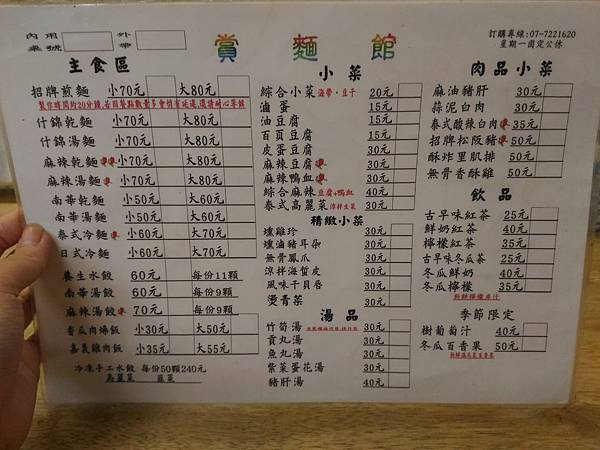 內用
桌號
外帶
賞麵館
訂購專線:07-7221620
星期一固定公休
主食區
招牌煎麵 小70元 大80元
什錦乾麵 小70元 大80元
什錦湯麵 小70元 大80元
麻辣乾麵 小70元 大80元
麻辣湯麵 小70元 大80元
南華乾麵 小50元 大60元
南華湯麵 小50元 大60元
泰式冷麵 小60元 大70元
日式冷麵 小60元 大70元
養生水餃 60元 每份11顆
南華湯餃 60元 每份9顆
麻辣湯餃 70元 每份9顆
香瓜肉燥飯 小30元 大50元
嘉義雞肉飯 小35元 大55元
冷凍手工水餃 每份50顆240元
高麗菜 韭菜
小菜
綜合小菜 海帶、豆干 20元
滷蛋 15元
油豆腐 15元
百頁豆腐 15元
皮蛋豆腐 30元
麻辣豆腐 30元
麻辣鴨血 30元
綜合麻辣 豆腐+鴨血 40元
泰式高麗菜 涼拌生菜 30元
精緻小菜
壇雞珍 30元
壇滷豬耳朵 30元
無骨鳳爪 30元
涼拌海蜇皮 30元
風味干貝唇 30元
燙青菜 30元
湯品
竹筍湯 30元
貢丸湯 30元
魚丸湯 30元
紫菜蛋花湯 30元
豬肝湯 40元
肉品小菜
麻油豬肝 30元
蒜泥白肉 30元
泰式酸辣白肉 35元
招牌松阪豬 50元
酥炸里肌排 50元
無骨香酥雞 50元
飲品
古早味紅茶 25元
鮮奶紅茶 40元
檸檬紅茶 35元
古早味冬瓜茶 25元
冬瓜鮮奶 40元
冬瓜檸檬 35元
新鮮檸檬原汁
季節限定
樹葡萄汁 40元
冬瓜百香果 50元